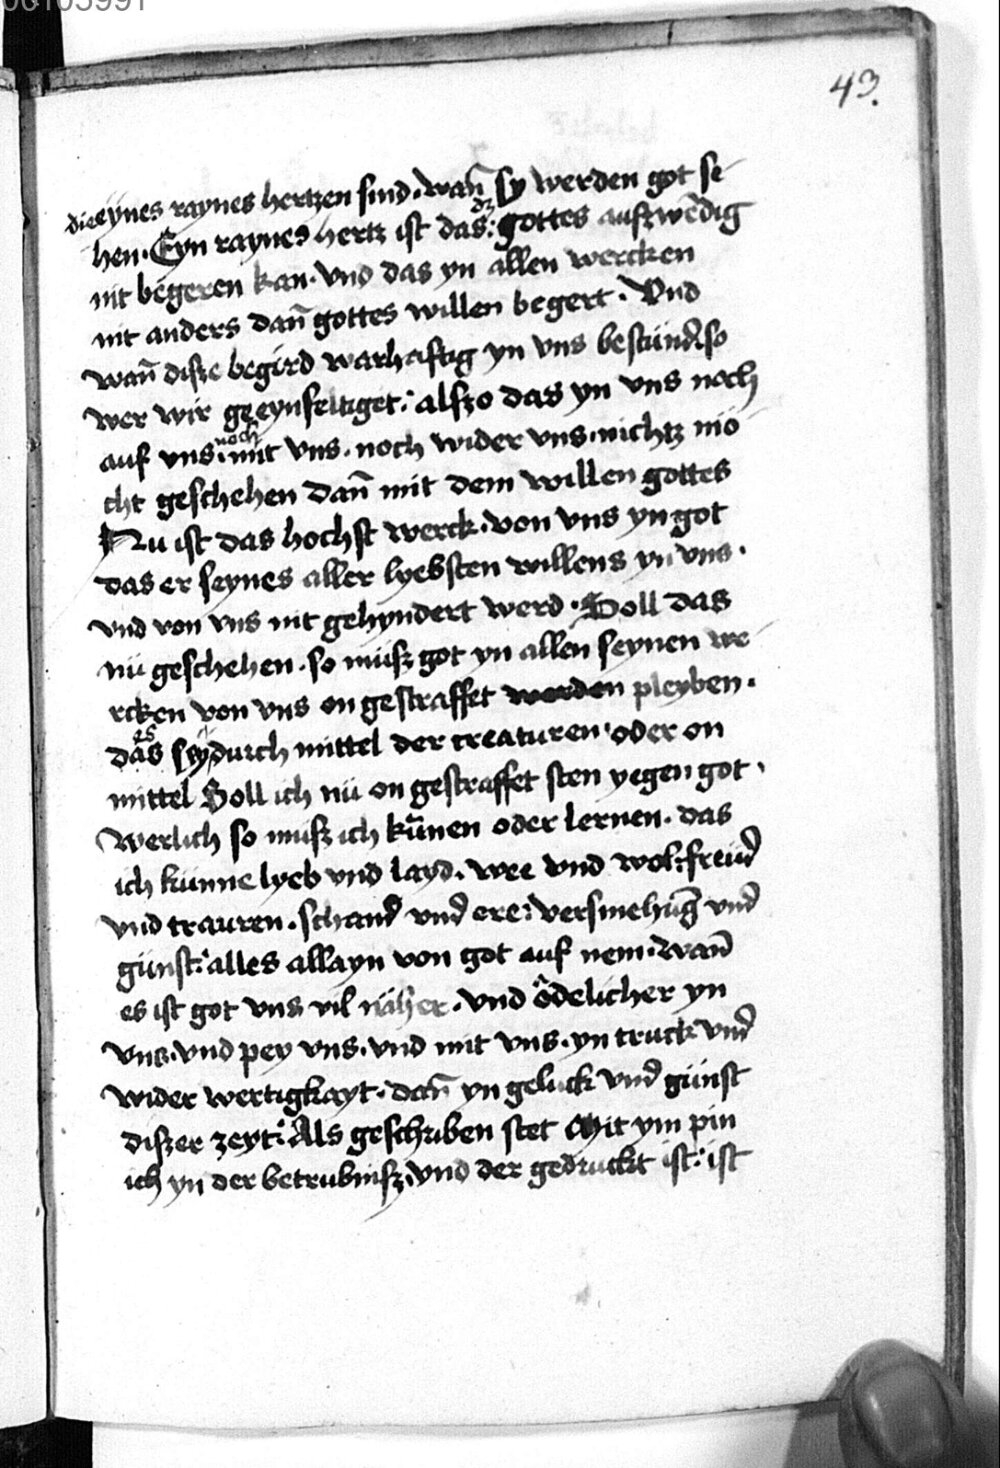 00105991
43.
die eynes raynes hertzen sind. wan̄ sy werden got se
hen. Eyn raynes hertz ist das: dz gottes auszwēdig
nit begeren kan. vnd das yn allen wercken
nit anders dan̄ gottes willen begert. Vnd
wan̄ disze begird warhaftig yn vns bestünd. so
wer wir geeynfeltiget: alszo das yn vns noch
auf vns. noch mit vns. noch wider vns. nichtz mö
cht geschehen dan̄ mit dem willen gottes
Nu ist das hochst werck. von vns yn got
das er seynes aller lyebsten willens yn vns.
vnd von vns nit gehyndert werd. Soll das
nü geschehen. so müsz got yn allen seynen we
rcken von vns on gestraffet werden pleyben.
das es sy durch mittel der creaturen oder on
mittel Soll ich nü on gestraffet sten gegen got.
Werlich so müsz ich künnen oder lernen. das
ich künne lyeb vnd layd. wee vnd wol: freüd
vnd trauren. schand vnd ere: versmehūg vnd
günst: alles allayn von got auf nem. wan̄
es ist got vns vil näher. vnd ödelicher yn
vns. vnd pey vns. vnd mit vns. yn truck vnd
wider wertigkayt. dan̄ yn geluck vnd günst
diszer zeyt: Als geschriben stet Mit ym pin
ich yn der betrubnisz. vnd der gedruckt ist: ist